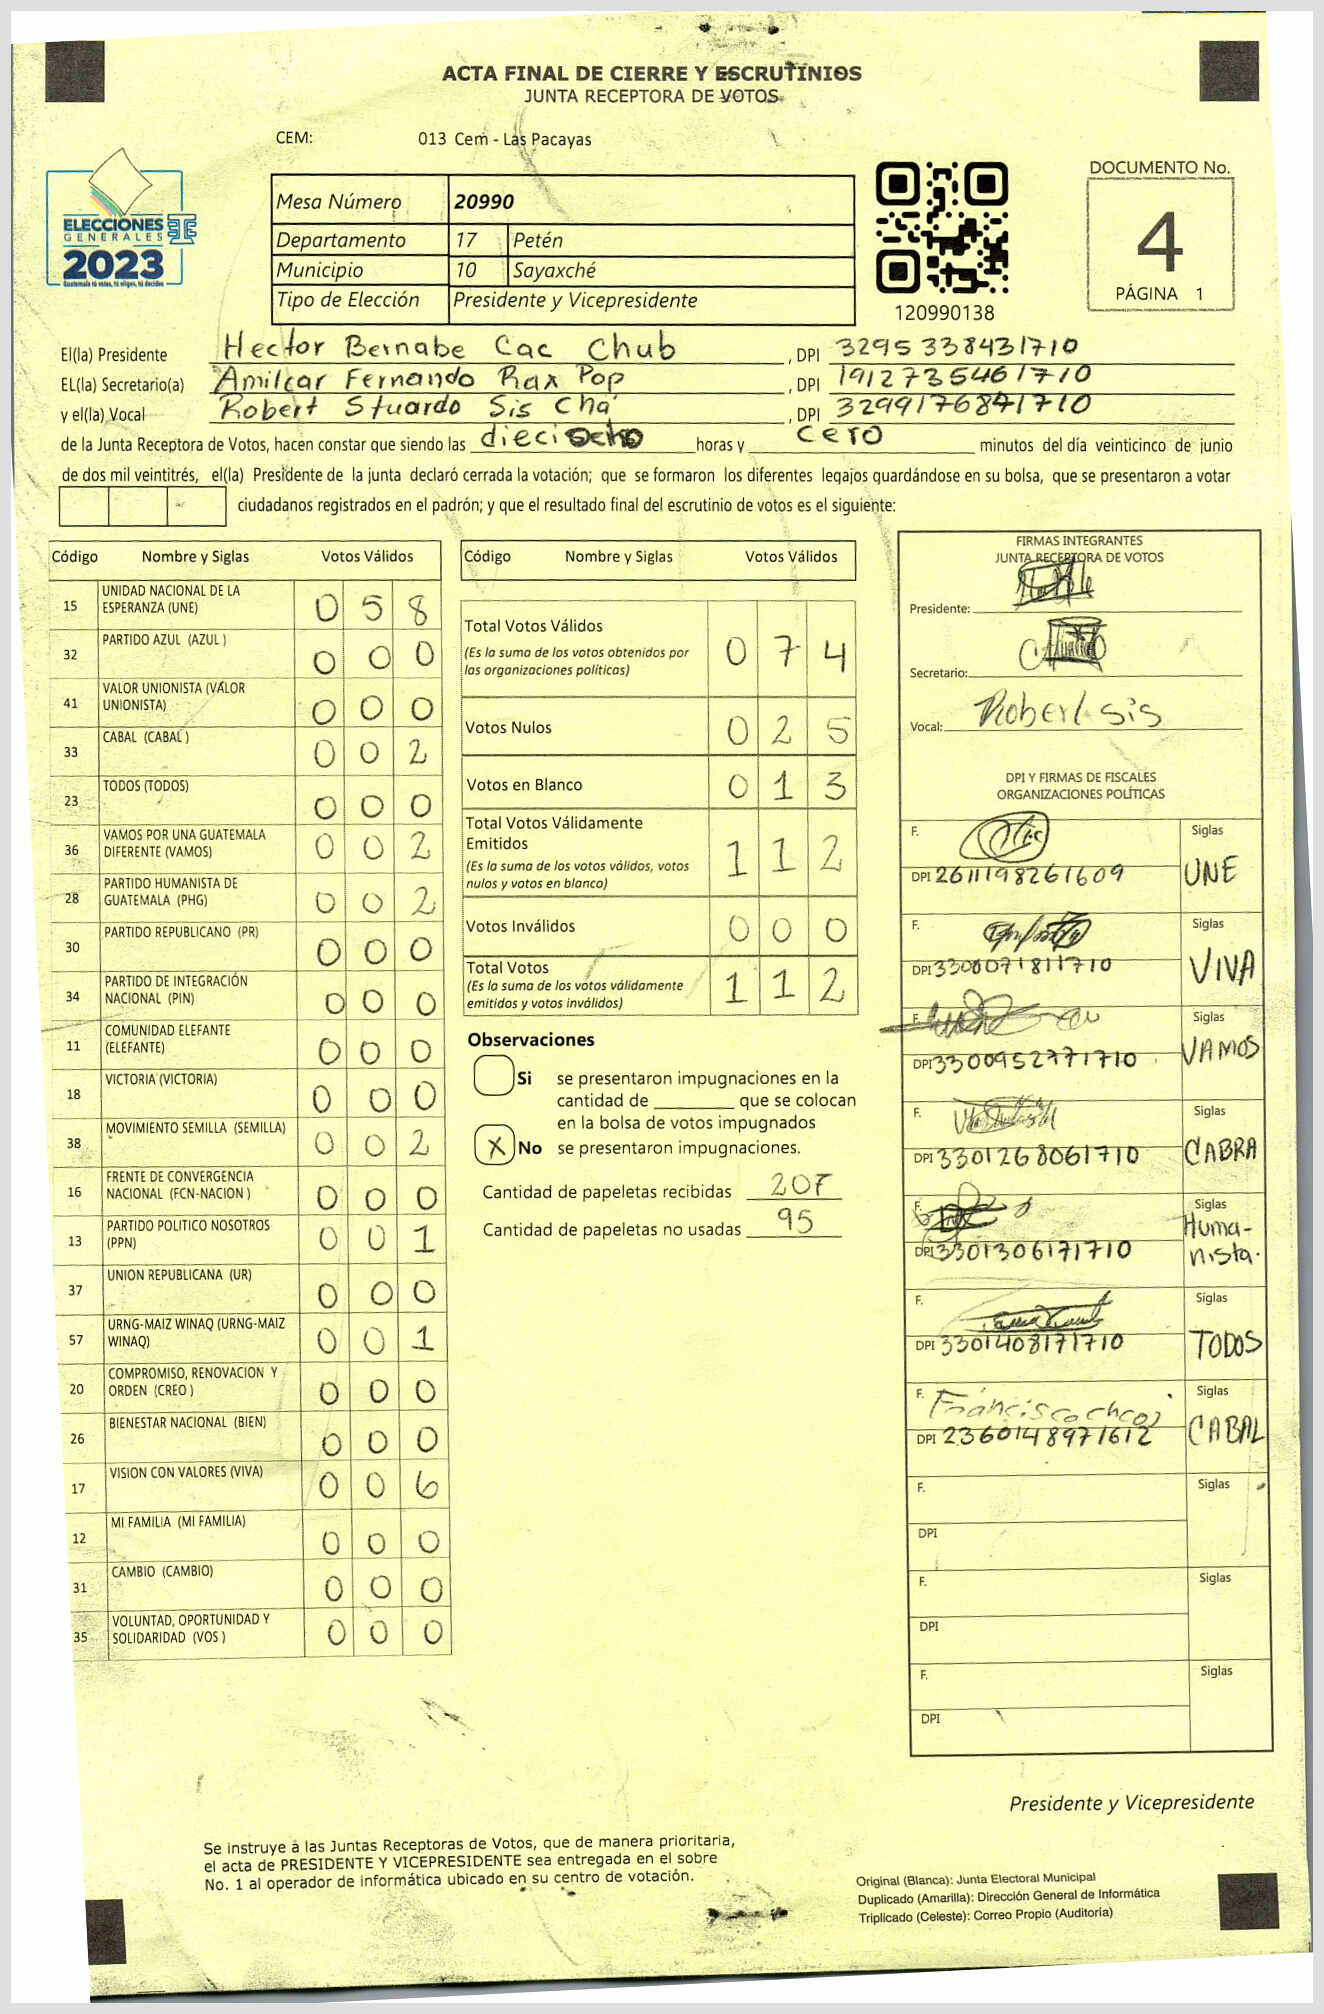 ACTA FINAL DE CIERRE Y ESCRUTINIOS
JUNTA RECEPTORA DE VOTOS
CEM: 013 Cem - Las Pacayas
ELECCIONES
GENERALES
2023
Guatemala tú votas, tú eliges, tú decides
Mesa Número 20990
Departamento 17 Petén
Municipio 10 Sayaxché
Tipo de Elección Presidente y Vicepresidente
120990138
DOCUMENTO No.
4
PÁGINA 1
El(la) Presidente Hector Bernabe Cac Chub , DPI 3295338431710
EL(la) Secretario(a) Amilcar Fernando Rax Pop , DPI 1912735461710
y el(la) Vocal Robert Stuardo Sis Cha , DPI 3299176841710
de la Junta Receptora de Votos, hacen constar que siendo las dieciocho horas y cero minutos del día veinticinco de junio
de dos mil veintitrés, el(la) Presidente de la junta declaró cerrada la votación; que se formaron los diferentes legajos guardándose en su bolsa, que se presentaron a votar
ciudadanos registrados en el padrón; y que el resultado final del escrutinio de votos es el siguiente:
Código Nombre y Siglas Votos Válidos
15 UNIDAD NACIONAL DE LA ESPERANZA (UNE) 0 5 8
32 PARTIDO AZUL (AZUL ) 0 0 0
41 VALOR UNIONISTA (VALOR UNIONISTA) 0 0 0
33 CABAL (CABAL ) 0 0 2
23 TODOS (TODOS) 0 0 0
36 VAMOS POR UNA GUATEMALA DIFERENTE (VAMOS) 0 0 2
28 PARTIDO HUMANISTA DE GUATEMALA (PHG) 0 0 2
30 PARTIDO REPUBLICANO (PR) 0 0 0
34 PARTIDO DE INTEGRACIÓN NACIONAL (PIN) 0 0 0
11 COMUNIDAD ELEFANTE (ELEFANTE) 0 0 0
18 VICTORIA (VICTORIA) 0 0 0
38 MOVIMIENTO SEMILLA (SEMILLA) 0 0 2
16 FRENTE DE CONVERGENCIA NACIONAL (FCN-NACION ) 0 0 0
13 PARTIDO POLITICO NOSOTROS (PPN) 0 0 1
37 UNION REPUBLICANA (UR) 0 0 0
57 URNG-MAIZ WINAQ (URNG-MAIZ WINAQ) 0 0 1
20 COMPROMISO, RENOVACION Y ORDEN (CREO ) 0 0 0
26 BIENESTAR NACIONAL (BIEN) 0 0 0
17 VISION CON VALORES (VIVA) 0 0 6
12 MI FAMILIA (MI FAMILIA) 0 0 0
31 CAMBIO (CAMBIO) 0 0 0
35 VOLUNTAD, OPORTUNIDAD Y SOLIDARIDAD (VOS ) 0 0 0
Código Nombre y Siglas Votos Válidos
Total Votos Válidos 0 7 4
(Es la suma de los votos obtenidos por
las organizaciones políticas)
Votos Nulos 0 2 5
Votos en Blanco 0 1 3
Total Votos Válidamente
Emitidos 1 1 2
(Es la suma de los votos válidos, votos
nulos y votos en blanco)
Votos Inválidos 0 0 0
Total Votos 1 1 2
(Es la suma de los votos válidamente
emitidos y votos inválidos)
Observaciones
Si se presentaron impugnaciones en la
cantidad de ________ que se colocan
en la bolsa de votos impugnados
X No se presentaron impugnaciones.
Cantidad de papeletas recibidas 207
Cantidad de papeletas no usadas 95
FIRMAS INTEGRANTES
JUNTA RECEPTORA DE VOTOS
Presidente:
Secretario:
Vocal: Robert Sis
DPI Y FIRMAS DE FISCALES
ORGANIZACIONES POLÍTICAS
F. Siglas
DPI 2611198261609 UNE
F. Siglas
DPI 3300071811710 VIVA
F. Siglas
DPI 3300952771710 VAMOS
F. Siglas
DPI 3301268061710 CABRA
F. Siglas
DPI 3301306171710 Huma-
nista.
F. Siglas
DPI 3301408171710 TODOS
F. Francisco Siglas
DPI 2360148971612 CABAL
F. Siglas
DPI
F. Siglas
DPI
F. Siglas
DPI
Presidente y Vicepresidente
Se instruye a las Juntas Receptoras de Votos, que de manera prioritaria,
el acta de PRESIDENTE Y VICEPRESIDENTE sea entregada en el sobre
No. 1 al operador de informática ubicado en su centro de votación.
Original (Blanca): Junta Electoral Municipal
Duplicado (Amarilla): Dirección General de Informática
Triplicado (Celeste): Correo Propio (Auditoría)